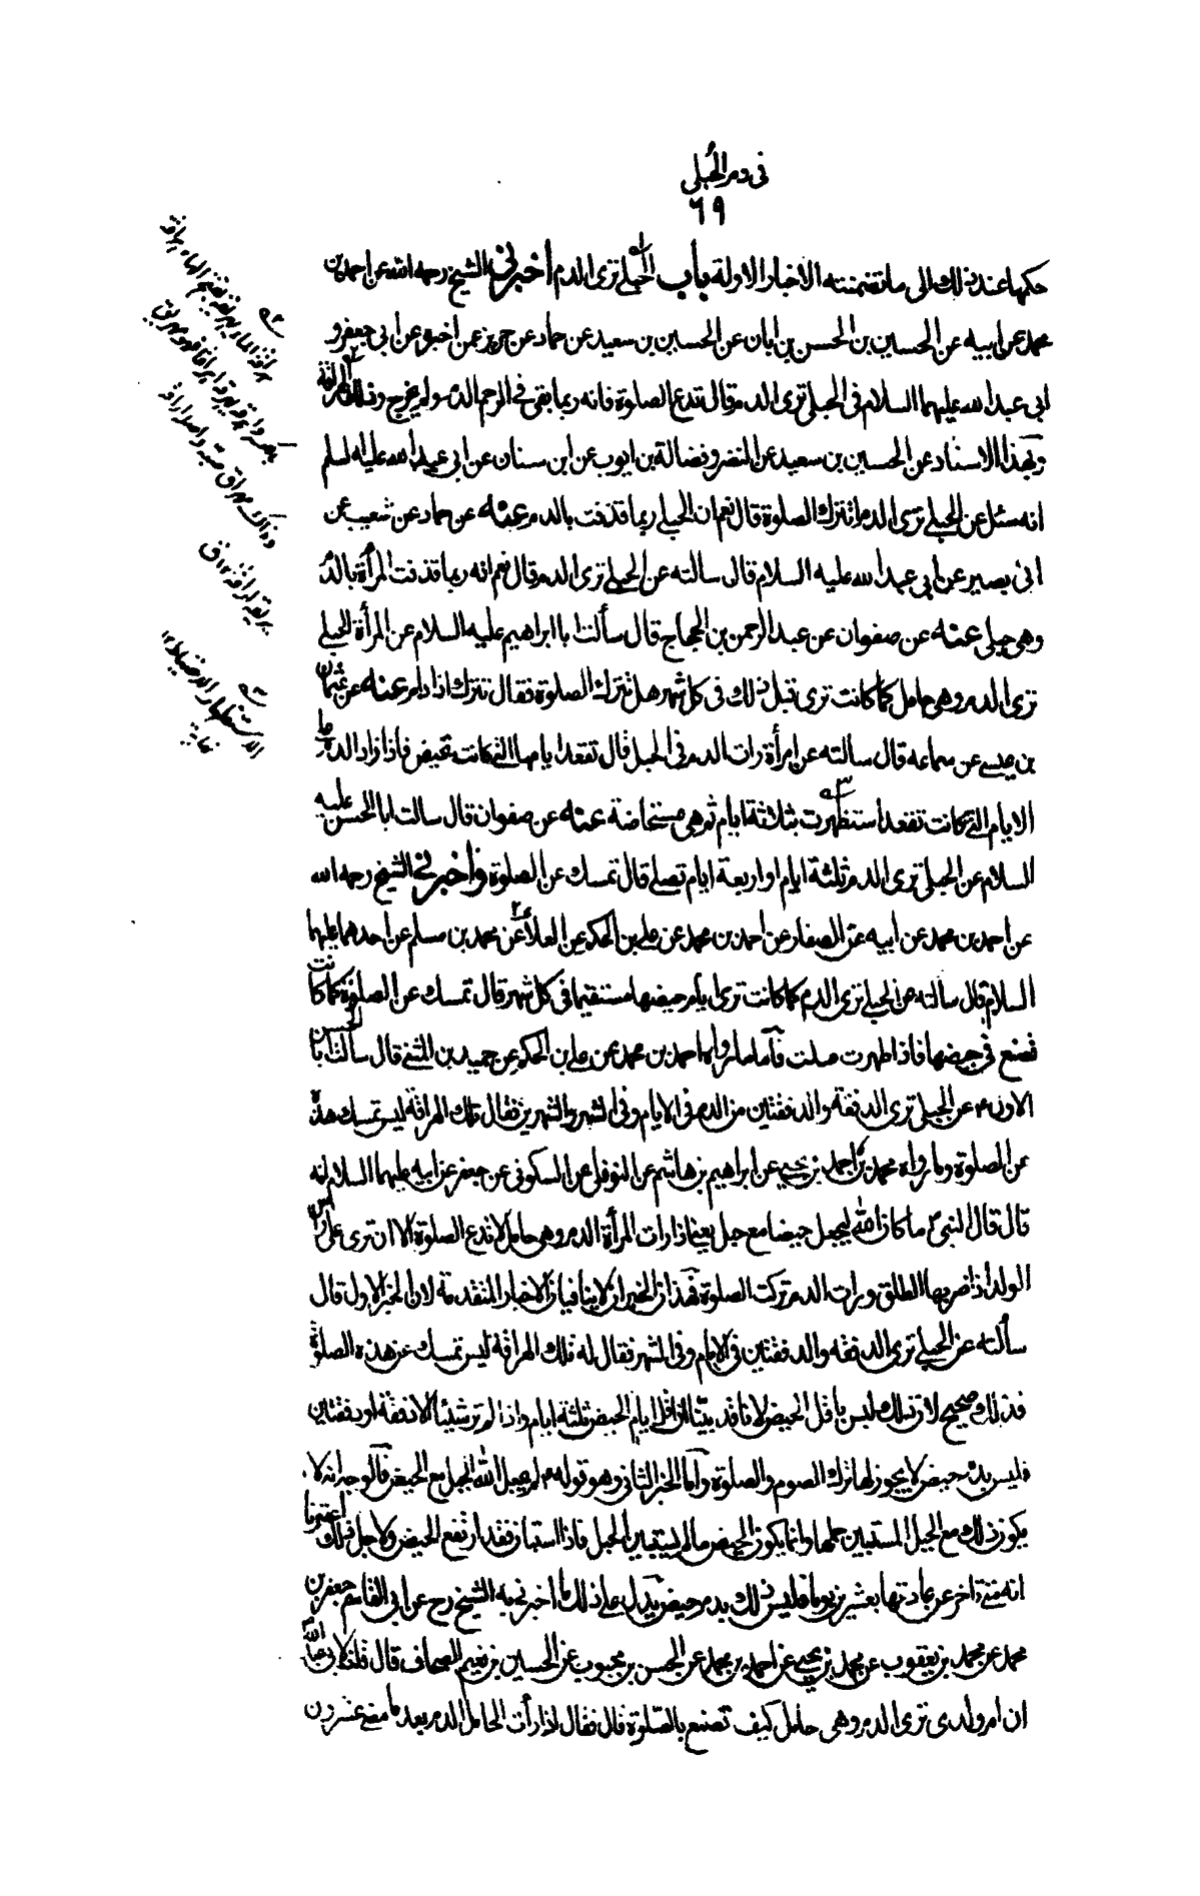 في دم الحبلى
٦٩
حكمها عند ذلك الى ما تضمنته الاخبار الاولة باب الحبلى ترى الدم اخبرني الشيخ رحمه الله عن احمد بن
محمد عن ابيه عن الحسين بن الحسن بن ابان عن الحسين بن سعيد عن حماد عن حريز عمن اخبره عن ابي جعفر و
ابي عبد الله عليهما السلام في الحبلى ترى الدم قال تدع الصلوة فانه ربما بقى في الرحم الدم ولم يخرج وتلك الهراقة
وبهذا الاسناد عن الحسين بن سعيد عن النضر وفضالة بن ايوب عن ابن سنان عن ابي عبد الله عليه السلم
انه سئل عن الحبلى ترى الدم اتترك الصلوة قال نعم ان الحبلى ربما قذفت بالدم عنه عن حماد عن شعيب عن
ابي بصير عن ابي عبد الله عليه السلام قال سالته عن الحبلى ترى الدم قال نعم انه ربما قذفت المرأة بالدم
وهي حبلى عنه عن صفوان عن عبد الرحمن بن الحجاج قال سألت ابا ابراهيم عليه السلام عن المرأة الحبلى
ترى الدم وهي حامل كما كانت ترى قبل ذلك في كل شهر هل تترك الصلوة فقال تترك اذا دام عنه عن عثمان
بن عيسى عن سماعه قال سالته عن امرأة رات الدم في الحبل قال تقعد ايامها التي كانت تحيض فاذا زاد الدم على
الايام التي كانت تقعد استظهرت بثلاثة ايام ثم هي مستحاضة عنه عن صفوان قال سالت ابا الحسن عليه
السلام عن الحبلى ترى الدم ثلثة ايام او اربعة ايام تصلى قال تمسك عن الصلوة واخبرني الشيخ رحمه الله
عن احمد بن محمد عن ابيه عن الصفار عن احمد بن محمد عن علي بن الحكم عن العلاء عن محمد بن مسلم عن احدهما عليهما
السلام قال سالته عن الحبلى ترى الدم كما كانت ترى ايام حيضها مستقيما في كل شهر قال تمسك عن الصلوة كما كانت
تصنع في حيضها فاذا طهرت صلت فاما ما رواه احمد بن محمد عن علي بن الحكم عن حميد بن المثنى قال سألت ابا الحسن
الاول ع عن الحبلى ترى الدفقة والدفقتين من الدم في الايام وفي الشهر والشهرين فقال تلك الهراقة ليس تمسك هذه
عن الصلوة وما رواه محمد بن احمد بن يحيى عن ابراهيم بن هاشم عن النوفلي عن السكوني عن جعفر عن ابيه عليهما السلام انه
قال قال النبي ص ما كان الله ليجعل حيضا مع حبل يعني اذا رات المرأة الدم وهي حامل لا تدع الصلوة الا ان ترى على راس
الولد اذا ضربها الطلق ورات الدم تركت الصلوة فهذان الخبران لا ينافيان الاخبار المتقدمة لان الخبر الاول قال
سألته عن الحبلى ترى الدفقه والدفقتين في الايام وفي الشهر فقال له تلك الهراقة ليس تمسك عن هذه الصلوة
فذلك صحيح لان ذلك ليس باقل الحيض لانا قد بيّنا ان اقل ايام الحيض ثلثة ايام واذا لم تر شيئا الا دفقة او دفقتين
فليس بدم حيض لا يجوز لها ترك الصوم والصلوة واما الخبر الثاني وهو قوله ع لم يجعل الله الحبل مع الحيض فالوجه انه لا
يكون ذلك مع الحبل المستبين حملها وانما يكون الحيض ما لم يستبين الحبل فاذا استبان فقد ارتفع الحيض ولاجل ذلك اعتبرنا
انه متى تاخر عن عادتها بعشرين يوما فليس ذلك بدم حيض يدل على ذلك ما اخبرني به الشيخ رح عن ابي القاسم جعفر بن
محمد عن محمد بن يعقوب عن محمد بن يحيى عن احمد بن محمد عن الحسن بن محبوب عن الحسين بن نعيم الصحاف قال قلت لابي عبد الله
ان ام ولدى ترى الدم وهي حامل كيف تصنع بالصلوة قال فقال اذا رأت الحامل الدم بعد ما مضى عشرون